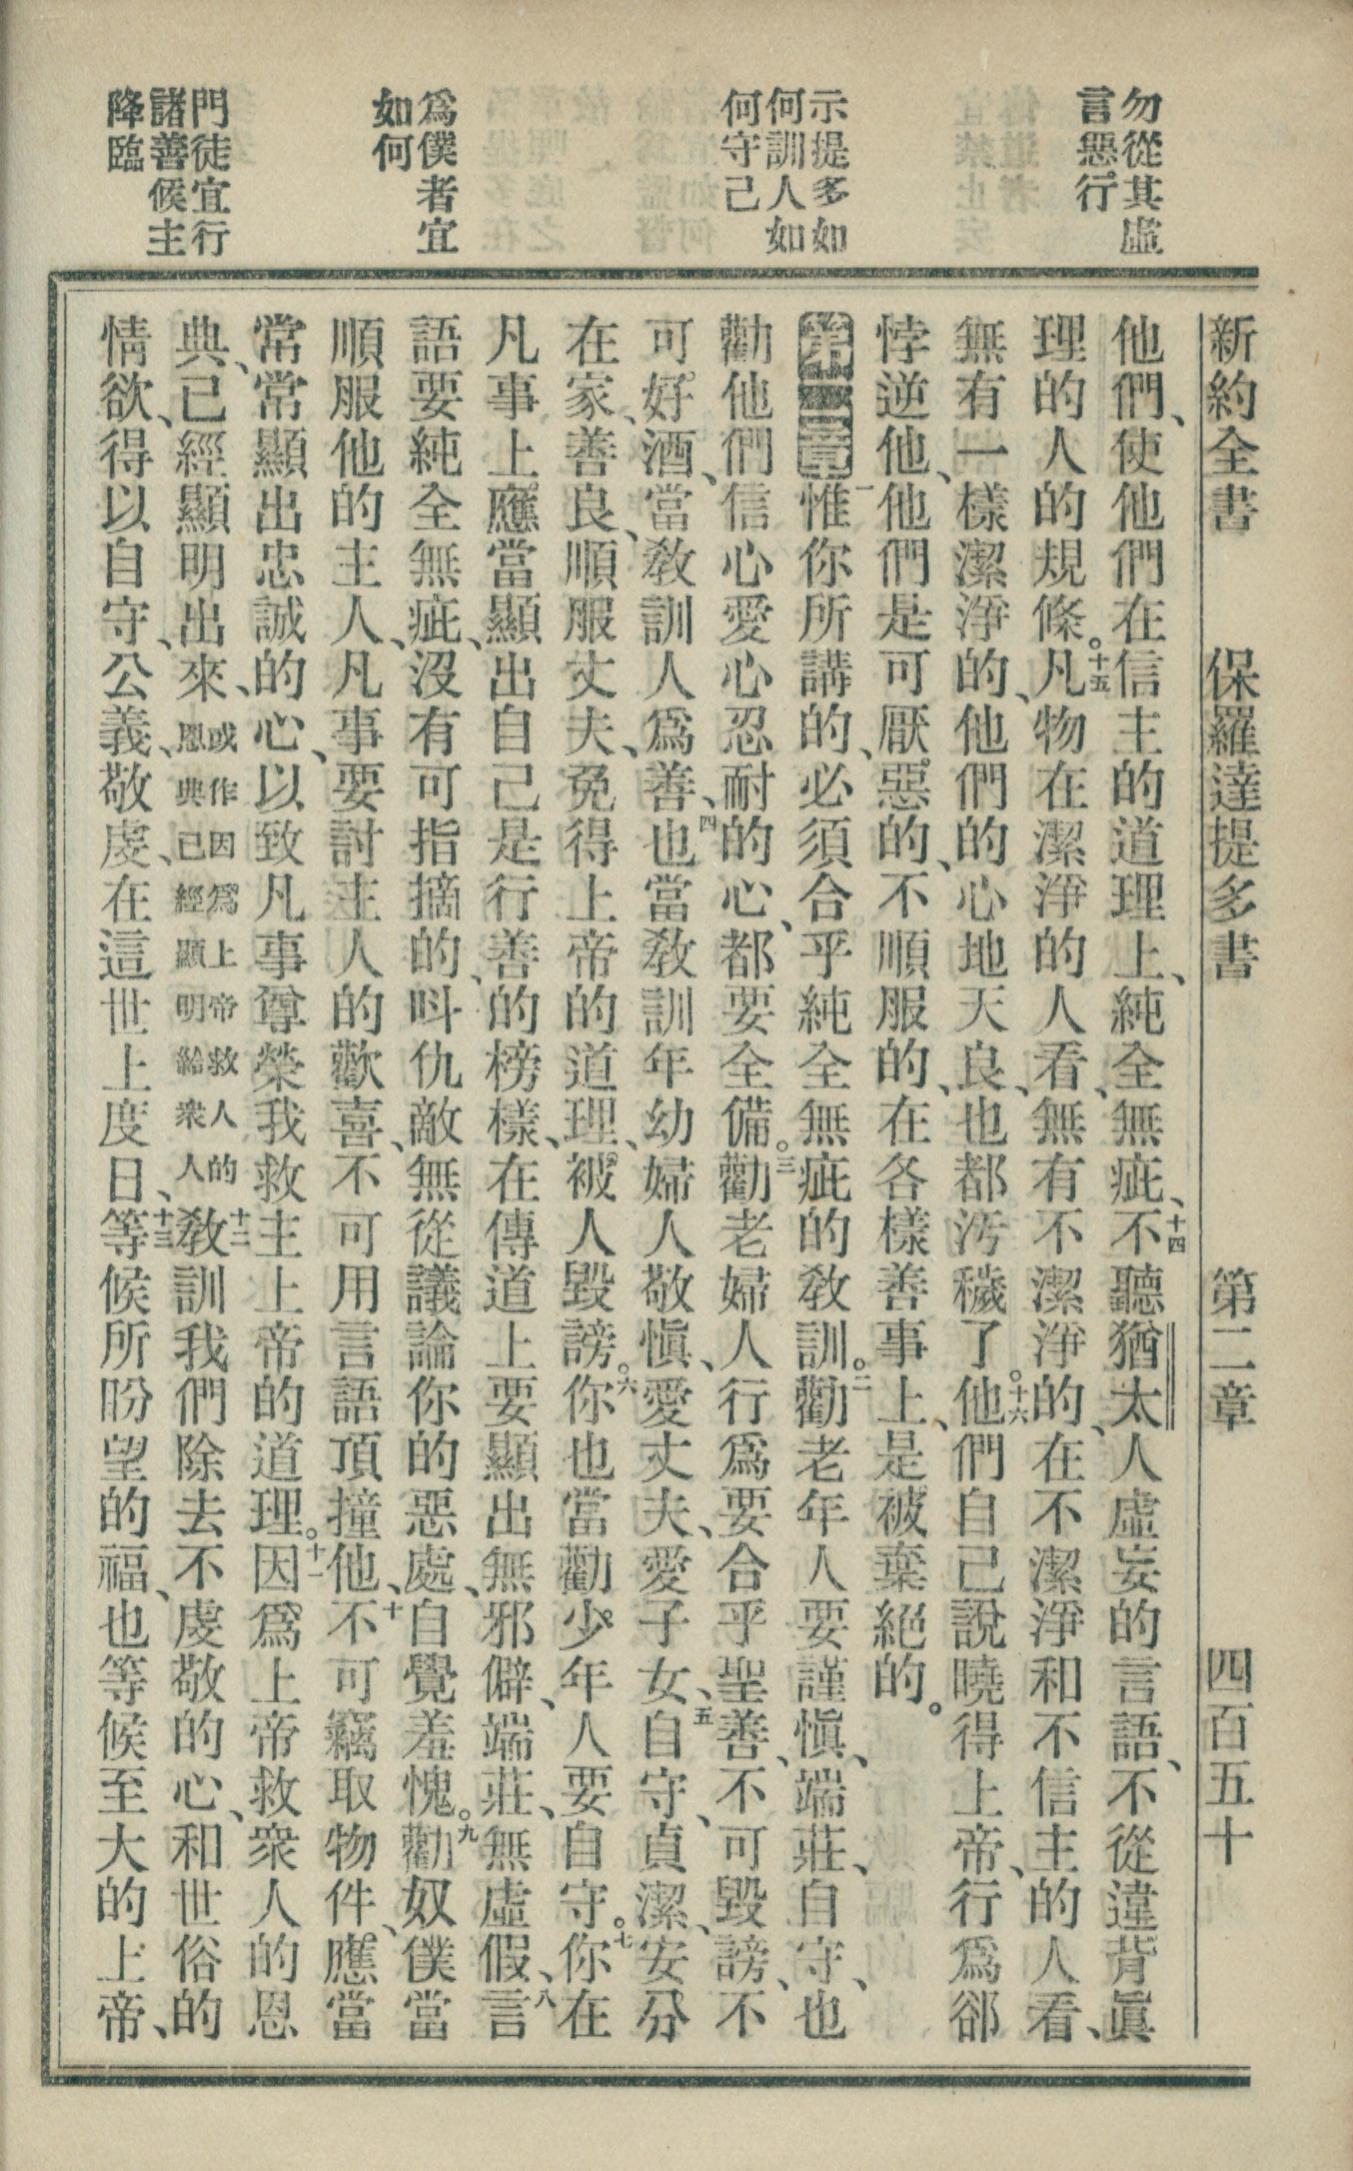 新約全書　保羅達提多書　第二章　四百五十
勿從其虛
言惡行
示提多如
何訓人如
何守己
爲僕者宜
如何
門徒宜行
諸善候主
降臨
他們、使他們在信主的道理上、純全無疵、十四不聽猶太人虛妄的言語、不從違背眞
理的人的規條。十五凡物在潔淨的人看、無有不潔淨的、在不潔淨和不信主的人看、
無有一樣潔淨的、他們的心地天良、也都汚穢了。十六他們自己說曉得上帝、行爲郤
悖逆他、他們是可厭惡的、不順服的、在各樣善事上、是被棄絕的。
第二章一惟你所講的、必須合乎純全無疵的敎訓。二勸老年人要謹愼、端莊、自守、也
勸他們信心愛心忍耐的心、都要全備。三勸老婦人行爲要合乎聖善、不可毀謗、不
可好酒、當敎訓人爲善、四也當敎訓年幼婦人敬愼、愛丈夫、愛子女、五自守、貞潔、安分
在家、善良、順服丈夫、免得上帝的道理、被人毀謗。六你也當勸少年人要自守。七你在
凡事上應當顯出自己是行善的榜樣、在傳道上要顯出無邪僻、端莊、無虛假、八言
語要純全無疵、沒有可指摘的、呌仇敵無從議論你的惡處、自覺羞愧。九勸奴僕當
順服他的主人、凡事要討主人的歡喜、不可用言語頂撞他、十不可竊取物件、應當
常常顯出忠誠的心、以致凡事尊榮我救主上帝的道理。十一因爲上帝救衆人的恩
典、已經顯明出來、或作因爲上帝救人的恩典已經顯明給衆人十二敎訓我們除去不虔敬的心、和世俗的
情欲、得以自守、公義、敬虔、在這世上度日、十三等候所盼望的福、也等候至大的上帝、